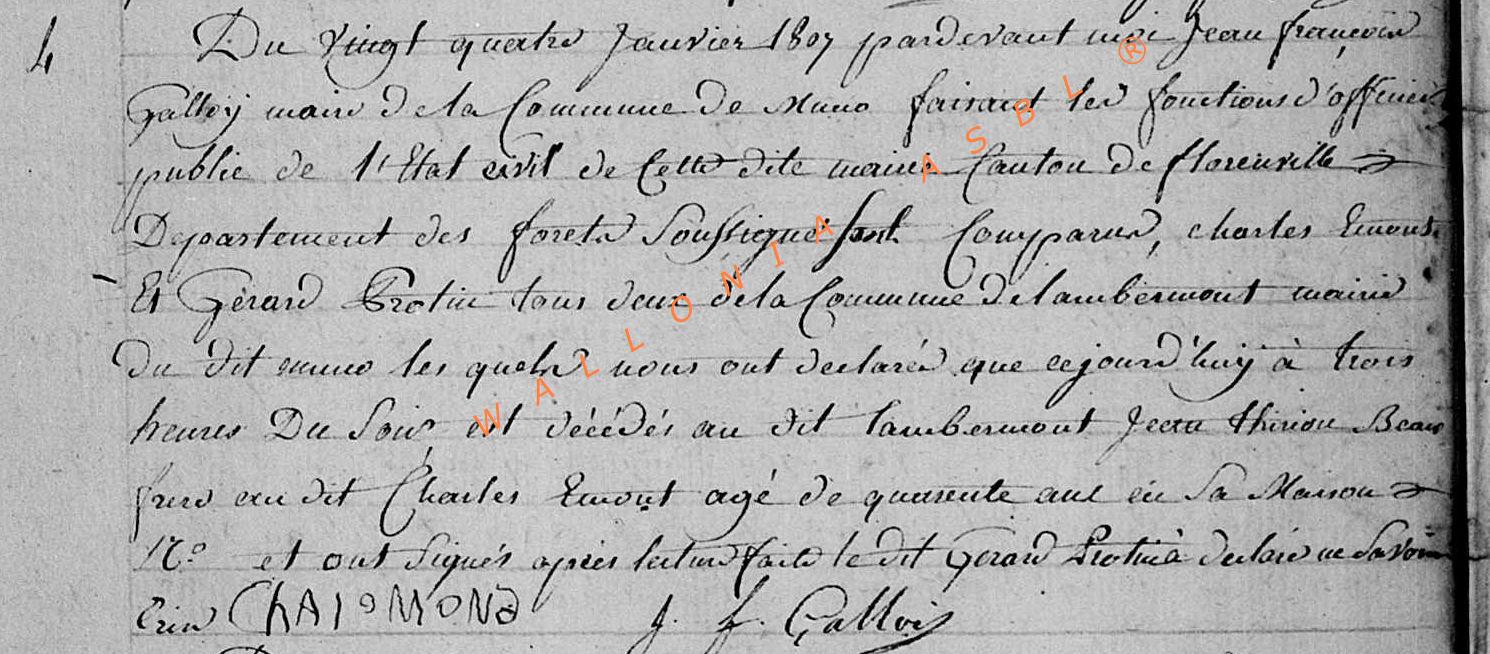 4
Du vingt quatre Janvier 1807 pardevant moi Jean françois
Galloy maire de la Commune de Muno faisant les fonctions d'officier
public de l'Etat civil de Cette dite mairie Canton de florenville
Departement des forets Soussigné sont Comparus, charles Emont
Et Gérard Protin tous deux de la Commune de lambermont mairie
du dit muno les quels nous ont declarés que cejourd'huy à trois
heures Du Soir est décédés au dit lambermont Jean thirion Beau
frere au dit Charles Emont agé de quarente ans en Sa Maison
N.o et ont signés après lecture faite le dit Gerard Protin à declaré ne Savoir
Crire J. f. Galloy
WALLONIA ASBL ®